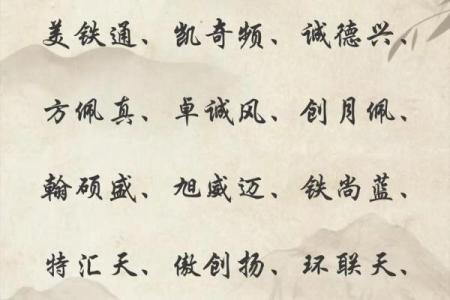 美铁通、凯奇频、诚德兴、
方佩真、卓诚风、创月佩、
翰硕盛、旭威迈、铁尚蓝、
特汇天、傲创扬、环联天、